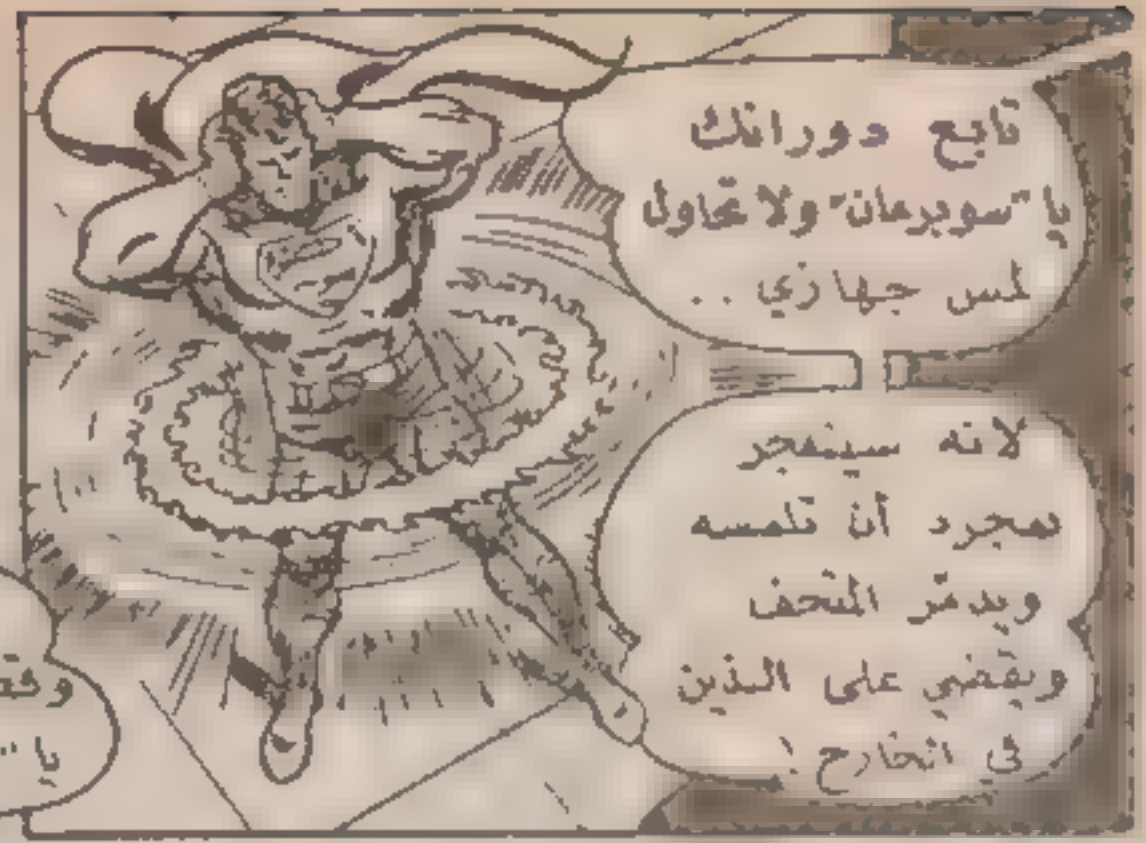 تابع دورانك
يا "سوبرمان" ولا تحاول
لمس جهازي ..
لانه سينفجر
بمجرد أن تلمسه
ويدمّر المتحف
ويقضي على الذين
في الخارج !
يا "